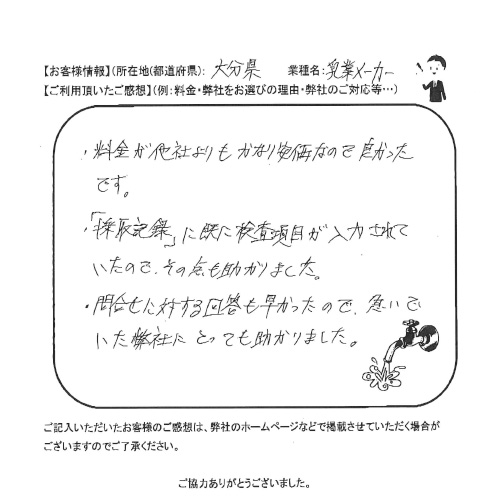 【お客様情報】(所在地(都道府県): 大分県 業種名: 乳業メーカー
【ご利用頂いたご感想】(例:料金・弊社をお選びの理由・弊社のご対応等…)
・料金が他社よりもかなり安価なので良かった
です。
・「採取記録」に既に検査項目が入力されて
いたので、その点も助かりました。
・問合せに対する回答も早かったので、急いで
いた弊社にとっても助かりました。
ご記入いただいたお客様のご感想は、弊社のホームページなどで掲載させていただく場合が
ございますのでご了承ください。
ご協力ありがとうございました。